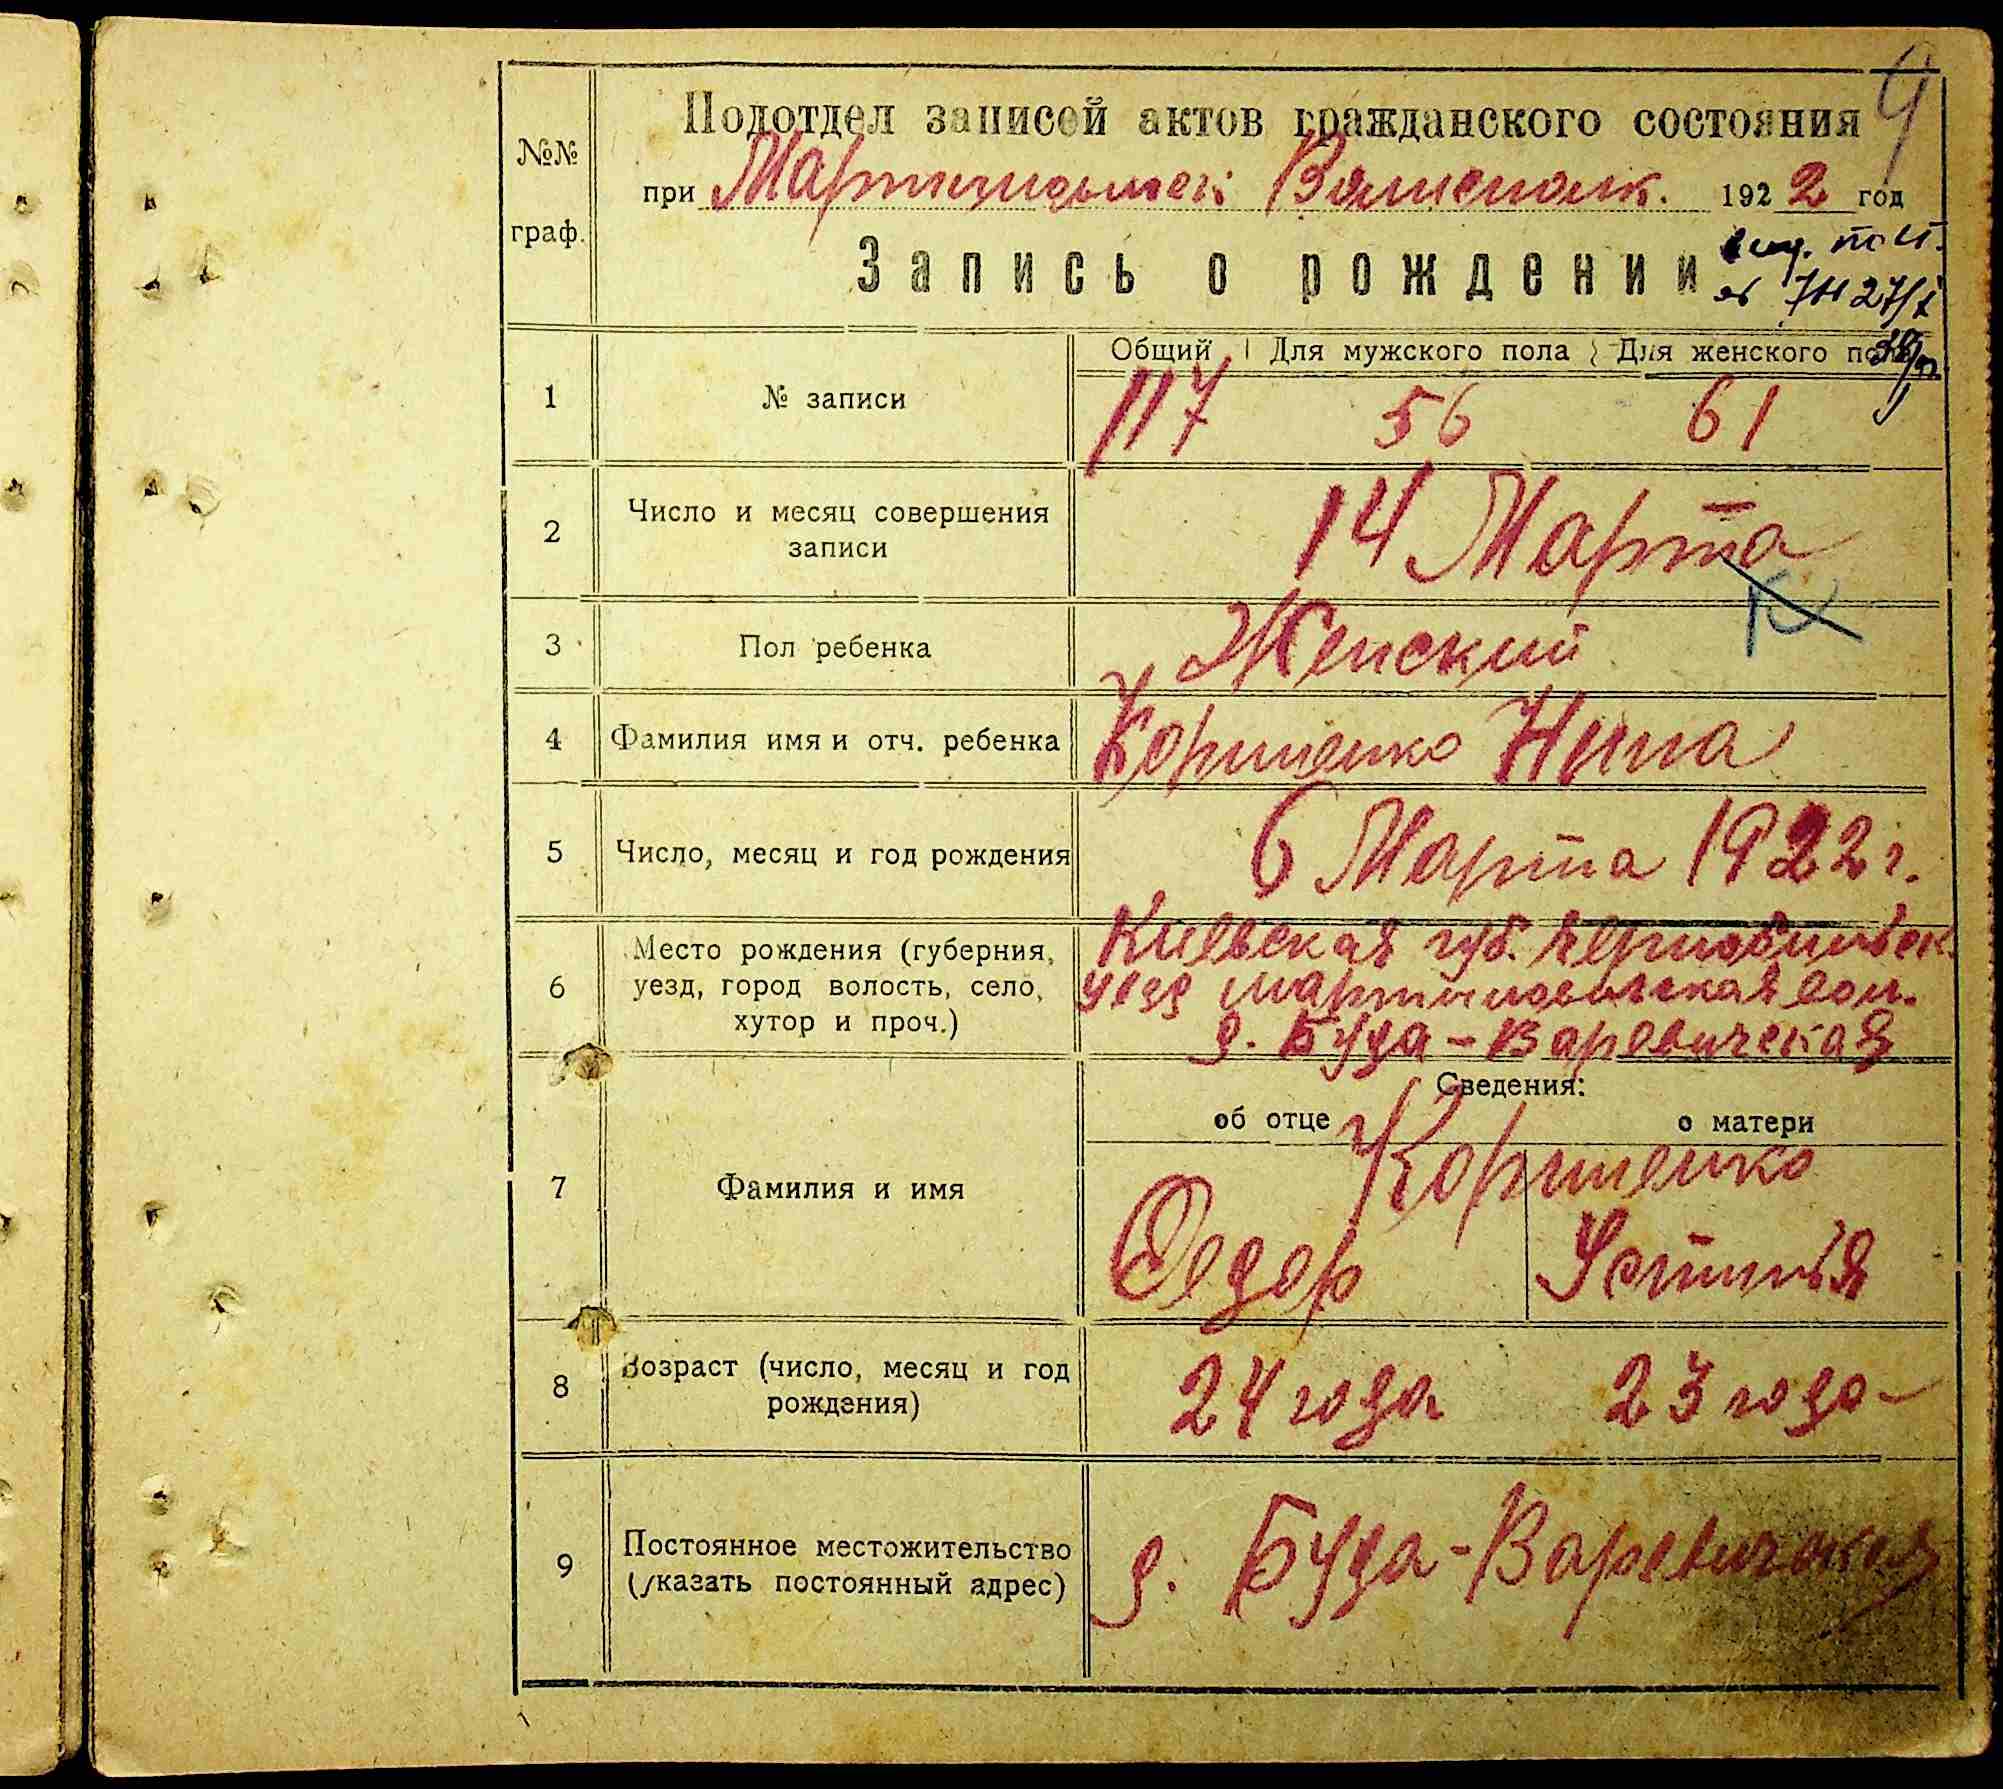 9
Подотдел записей актов гражданского состояния
№№
граф.
при Мартиновской Волисполк. 1922 год
Запись о рождении
Общий Для мужского пола Для женского пола
1 № записи 117 56 61
2 Число и месяц совершения
записи
14 Марта
3 Пол ребенка Женский
4 Фамилия имя и отч. ребенка Коршенко Нина
5 Число, месяц и год рождения 6 Марта 1922 г.
6 Место рождения (губерния,
уезд, город волость, село,
хутор и проч.)
Киевская губ. Чернобыльск.
уезд Мартиновская вол.
д. Буда-Варовическая
Сведения:
об отце о матери
7 Фамилия и имя
Коршенко
Федор Устинья
8 Возраст (число, месяц и год
рождения)
24 года 23 года
9 Постоянное местожительство
(указать постоянный адрес)
д. Буда-Варевическая